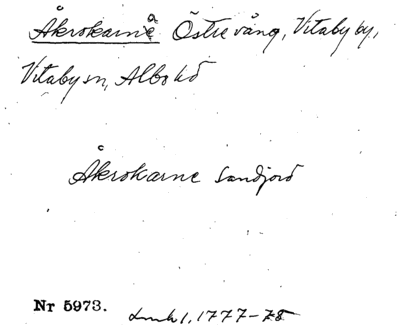 Åkrokarne Östre vång, Vitaby by,
Vitaby sn, Albo hd
Åkrokarne Sandjord
Nr 5973. Lmh 1, 1777-78